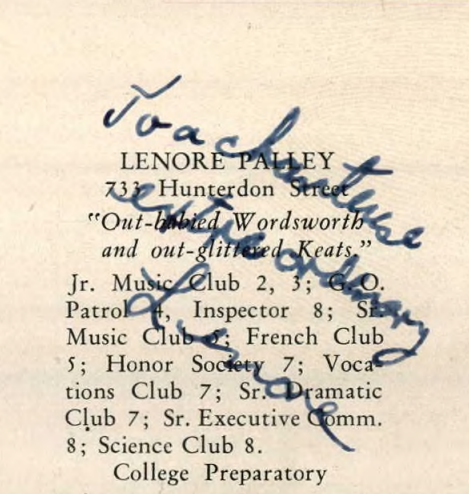 To a chanteuse
extraordinary
Lenore
LENORE PALLEY
733 Hunterdon Street
"Out-babied Wordsworth
and out-glittered Keats."
Jr. Music Club 2, 3; G.O.
Patrol 4, Inspector 8; Sr.
Music Club 5; French Club
5; Honor Society 7; Voca-
tions Club 7; Sr. Dramatic
Club 7; Sr. Executive Comm.
8; Science Club 8.
College Preparatory